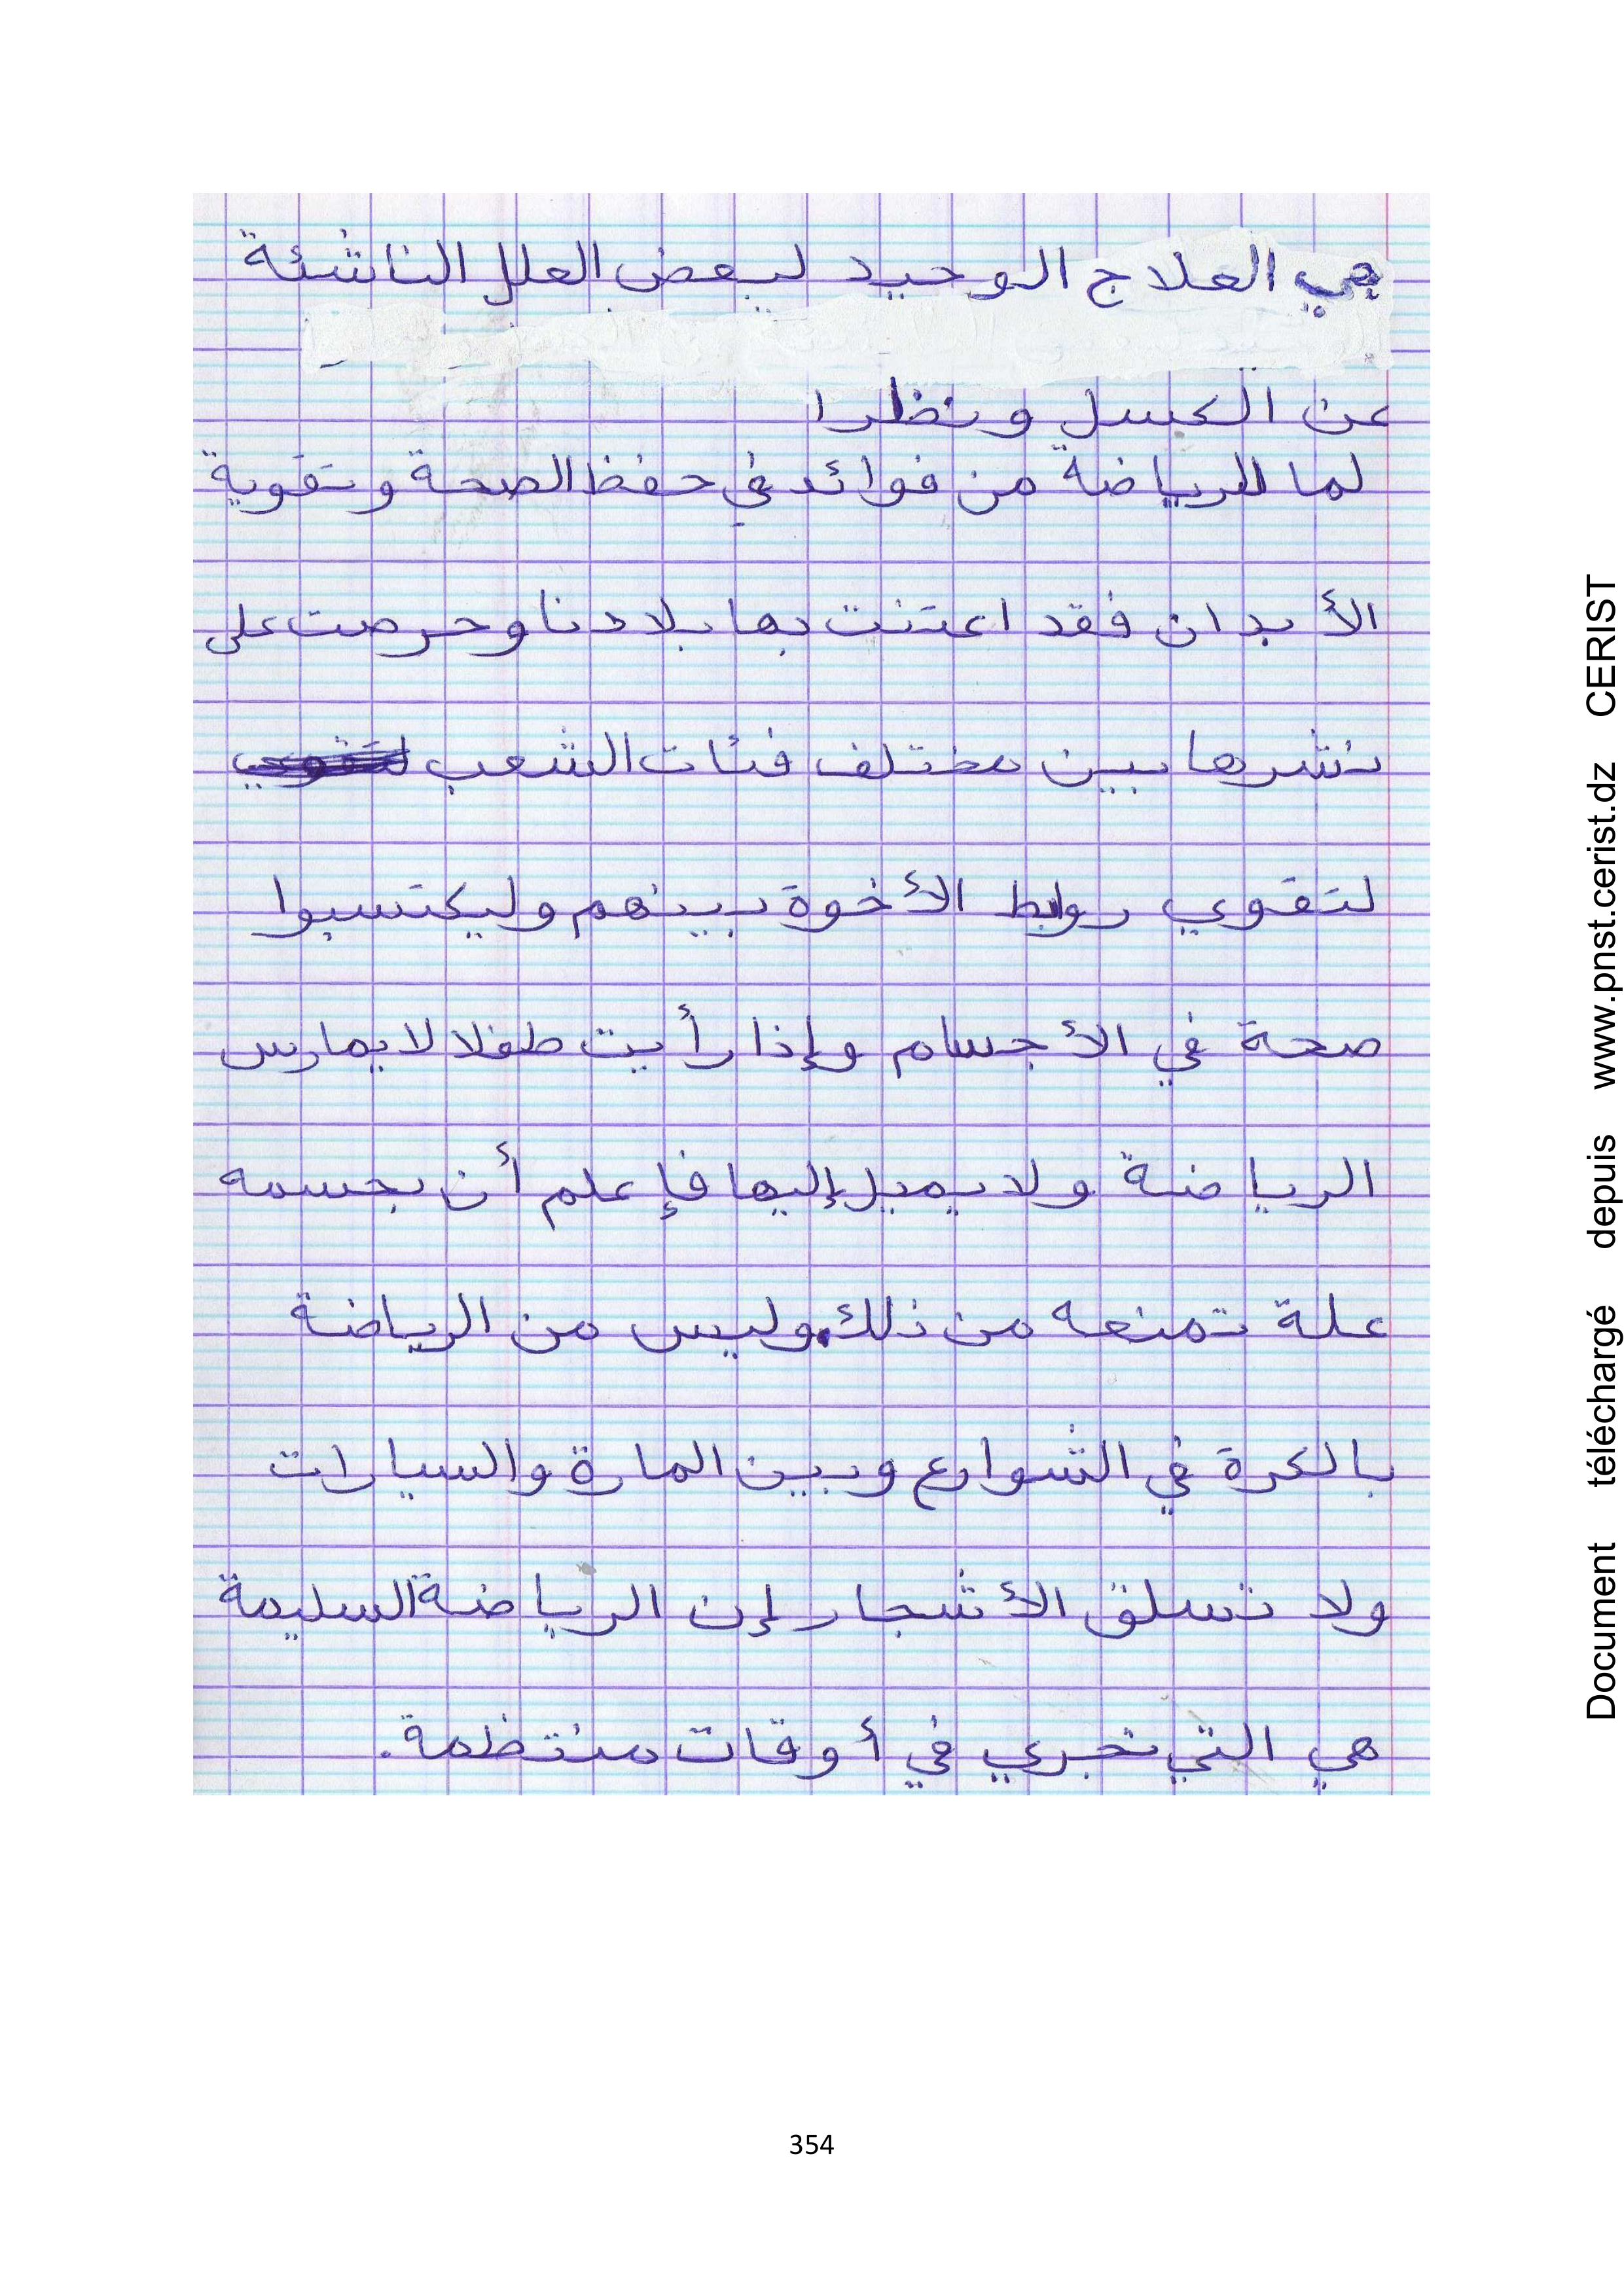 هي العلاج الوحيد لبعض العلل الناشئة
عن الكسل ونظرا
لما للرياضة من فوائد في حفظ الصحة وتقوية
الأبدان فقد اعتنت بها بلادنا وحرصت على
نشرها بين مختلف فئات الشعب
لتقوي روابط الأخوة بينهم وليكتسبوا
صحة في الأجسام وإذا رأيت طفلا لا يمارس
الرياضة ولا يميل إليها فإعلم أن بجسمه
علة تمنعه من ذلك، وليس من الرياضة
بالكرة في الشوارع وبين المارة والسيارات
ولا تسلق الأشجار إن الرياضة السليمة
هي التي تجري في أوقات منتظمة.
354
Document téléchargé depuis www.pnst.cerist.dz CERIST